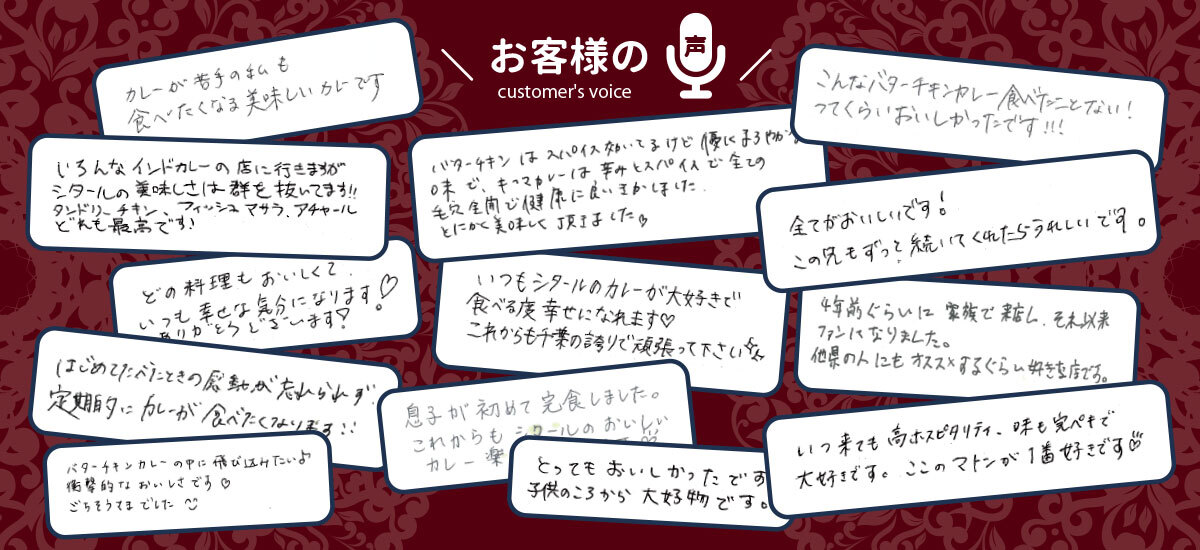 お客様の
声
customer's voice
カレーが苦手の私も
食べたくなる美味しいカレーです
いろんなインドカレーの店に行きますが
シタールの美味しさは群を抜いてます!!
タンドリーチキン、フィッシュマサラ、アチャール
どれも最高です!
どの料理もおいしくて、
いつも幸せな気分になります♡
ありがとうございます!
はじめてたべたときの感動が忘れられず
定期的にカレーが食べたくなります!!
バターチキンカレーの中に飛び込みたいよ♪
衝撃的なおいしさです♡
ごちそうさまでした
バターチキンはスパイス効いてるけど優しくまろやかな
味で、キーマカレーは辛みとスパイスで全ての
毛穴全開で健康に良い
とにかく美味しく頂きました♡
いつもシタールのカレーが大好きで
食べる度幸せになれます♡
これからも千葉の誇りで頑張って下さい
息子が初めて完食しました。
これからもシタールのおいしい
カレー楽
とってもおいしかったです
子供のころから大好物です。
こんなバターチキンカレー食べたことない!
ってくらいおいしかったです!!!
全てがおいしいです!
この先もずっと続いてくれたらうれしいです。
4年前ぐらいに家族で来店し、それ以来
ファンになりました。
他県の人にもオススメするぐらい好きな店です。
いつ来ても高ホスピタリティ、味も完ペキで
大好きです。ここのマトンが1番好きです♡